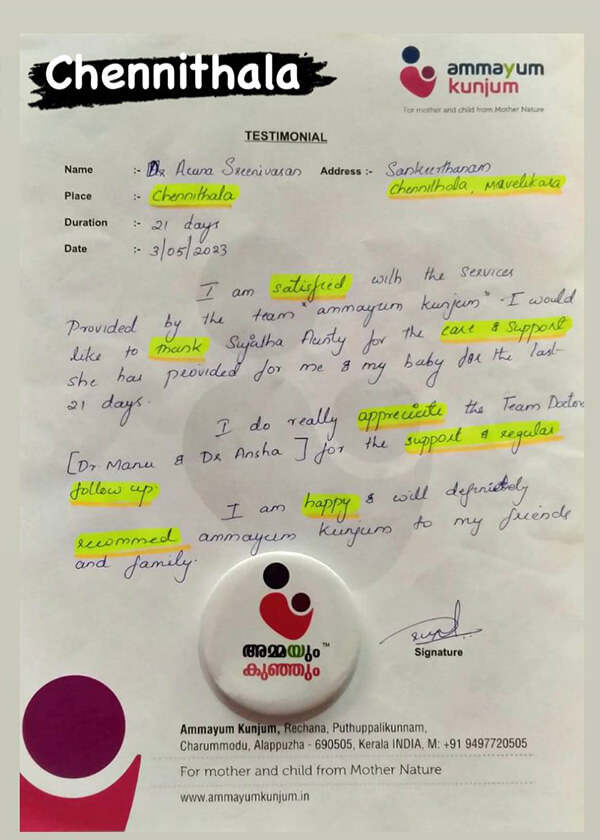 Chennithala
ammayum
kunjum
For mother and child from Mother Nature
TESTIMONIAL
Name :- Dr Sreenivasan Address :- Sankeerthanam
Chennithala, Mavelikara
Place :- Chennithala
Duration :- 21 days
Date :- 3/05/2023
I am satisfied with the services
Provided by the team "ammayum kunjum". I would
like to thank Sujatha Aunty for the care & support
she has provided for me & my baby for the last
21 days.
I do really appreciate the Team Doctor
[Dr. Manu & Dr Ansha] for the support & regular
follow up.
I am happy & will definitely
recommed ammayum kunjum to my friends
and family.
അമ്മയും ™
കുഞ്ഞും
Signature
Ammayum Kunjum, Rechana, Puthuppalikunnam,
Charummodu, Alappuzha - 690505, Kerala INDIA, M: +91 9497720505
For mother and child from Mother Nature
www.ammayumkunjum.in